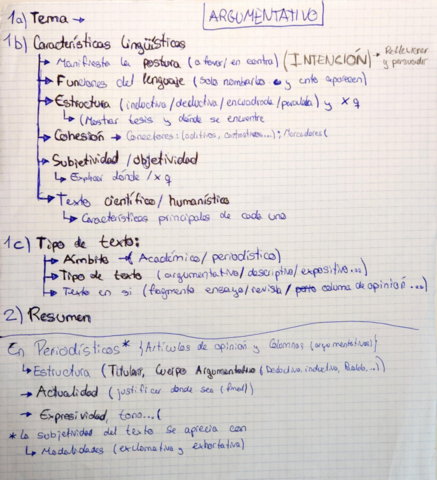 1a) Tema → ARGUMENTATIVO
1b) Características lingüísticas
→ Manifiesta la postura (a favor/en contra) (INTENCIÓN) → Reflexionar y persuadir
→ Funciones del lenguaje (solo nombrarlas y cnto aparecen)
→ Estructura (inductiva/deductiva/encuadrada/paralela) y x q
↳ (Mostrar tesis y dónde se encuentre
→ Cohesión → Conectores: (aditivos, contrastivos...); Marcadores (
→ Subjetividad/objetividad
↳ Explicar dónde/x q
→ Texto científico/humanístico
↳ Características principales de cada uno
1c) Tipo de texto:
→ Ámbito → (Académico/periodístico)
→ Tipo de texto (argumentativo/descriptivo/expositivo...)
→ Texto en si (fragmento ensayo/revista/ columna de opinión...)
2) Resumen
En Periodísticos* {Artículos de opinión y Columnas (argumentativas)}
↳ Estructura (Titular, Cuerpo Argumentativo (Deductiva, inductiva, Paralela...))
→ Actualidad (justificar donde sea (final)
→ Expresividad, tono...(
* la subjetividad del texto se aprecia con
↳ Modalidades (exclamativa y exhortativa)